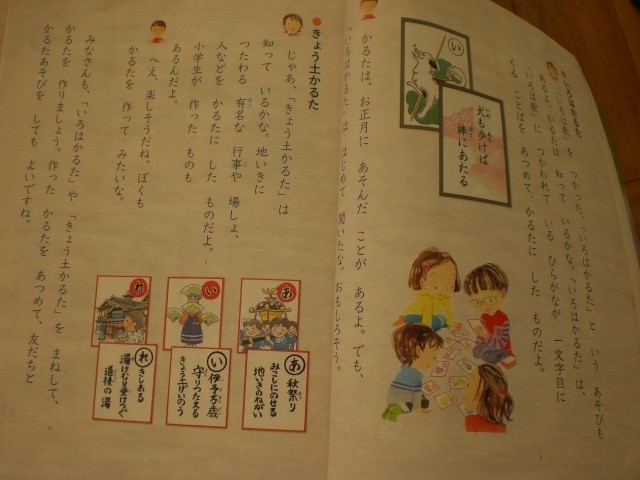 いろはかるた
「いろは歌」を つかった、「いろはかるた」と いう あそびも
あるよ。かるたは 知って いるかな。「いろはかるた」は、
「いろは歌」に つかわれて いる ひらがなが 一文字目に
くる ことばを あつめて、かるたに した ものだよ。
い
犬も歩けば
棒にあたる
かるたは、お正月に あそんだ ことが あるよ。でも、
「いろはかるた」は はじめて 聞いたな。おもしろそう。
きょう土かるた
じゃあ、「きょう土かるた」は
知って いるかな。地いきに
つたわる 有名な 行事や 場しょ、
人などを かるたに した ものだよ。
小学生が 作った ものも
あるんだよ。
へえ、楽しそうだね。ぼくも
かるたを 作って みたいな。
あ
い
れ
あ 秋祭り
みこしにのせる
地いきのねがい
い 伊予万歳
守りつたえる
きょう土げいのう
れ れきしある
道後の湯
みなさんも、「いろはかるた」や 「きょう土かるた」を まねして、
かるたを 作りましょう。作った かるたを あつめて、友だちと
かるたあそびを しても よいですね。